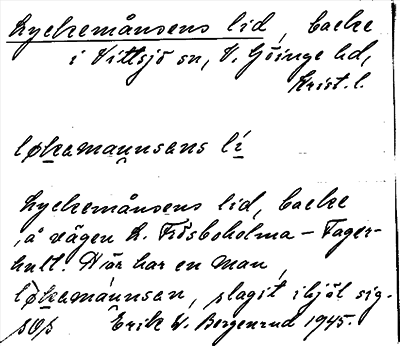 Lyckemånsens lid, backe
i Vittsjö sn, V. Göinge hd,
Krist. l.
løkamannsens lí
Lyckemånsens lid, backe
å vägen L. Frösboholma – Fager-
hult. Här har en man,
løkamannsen, slagit ihjäl sig.
Erik W. Borgenrud 1945.